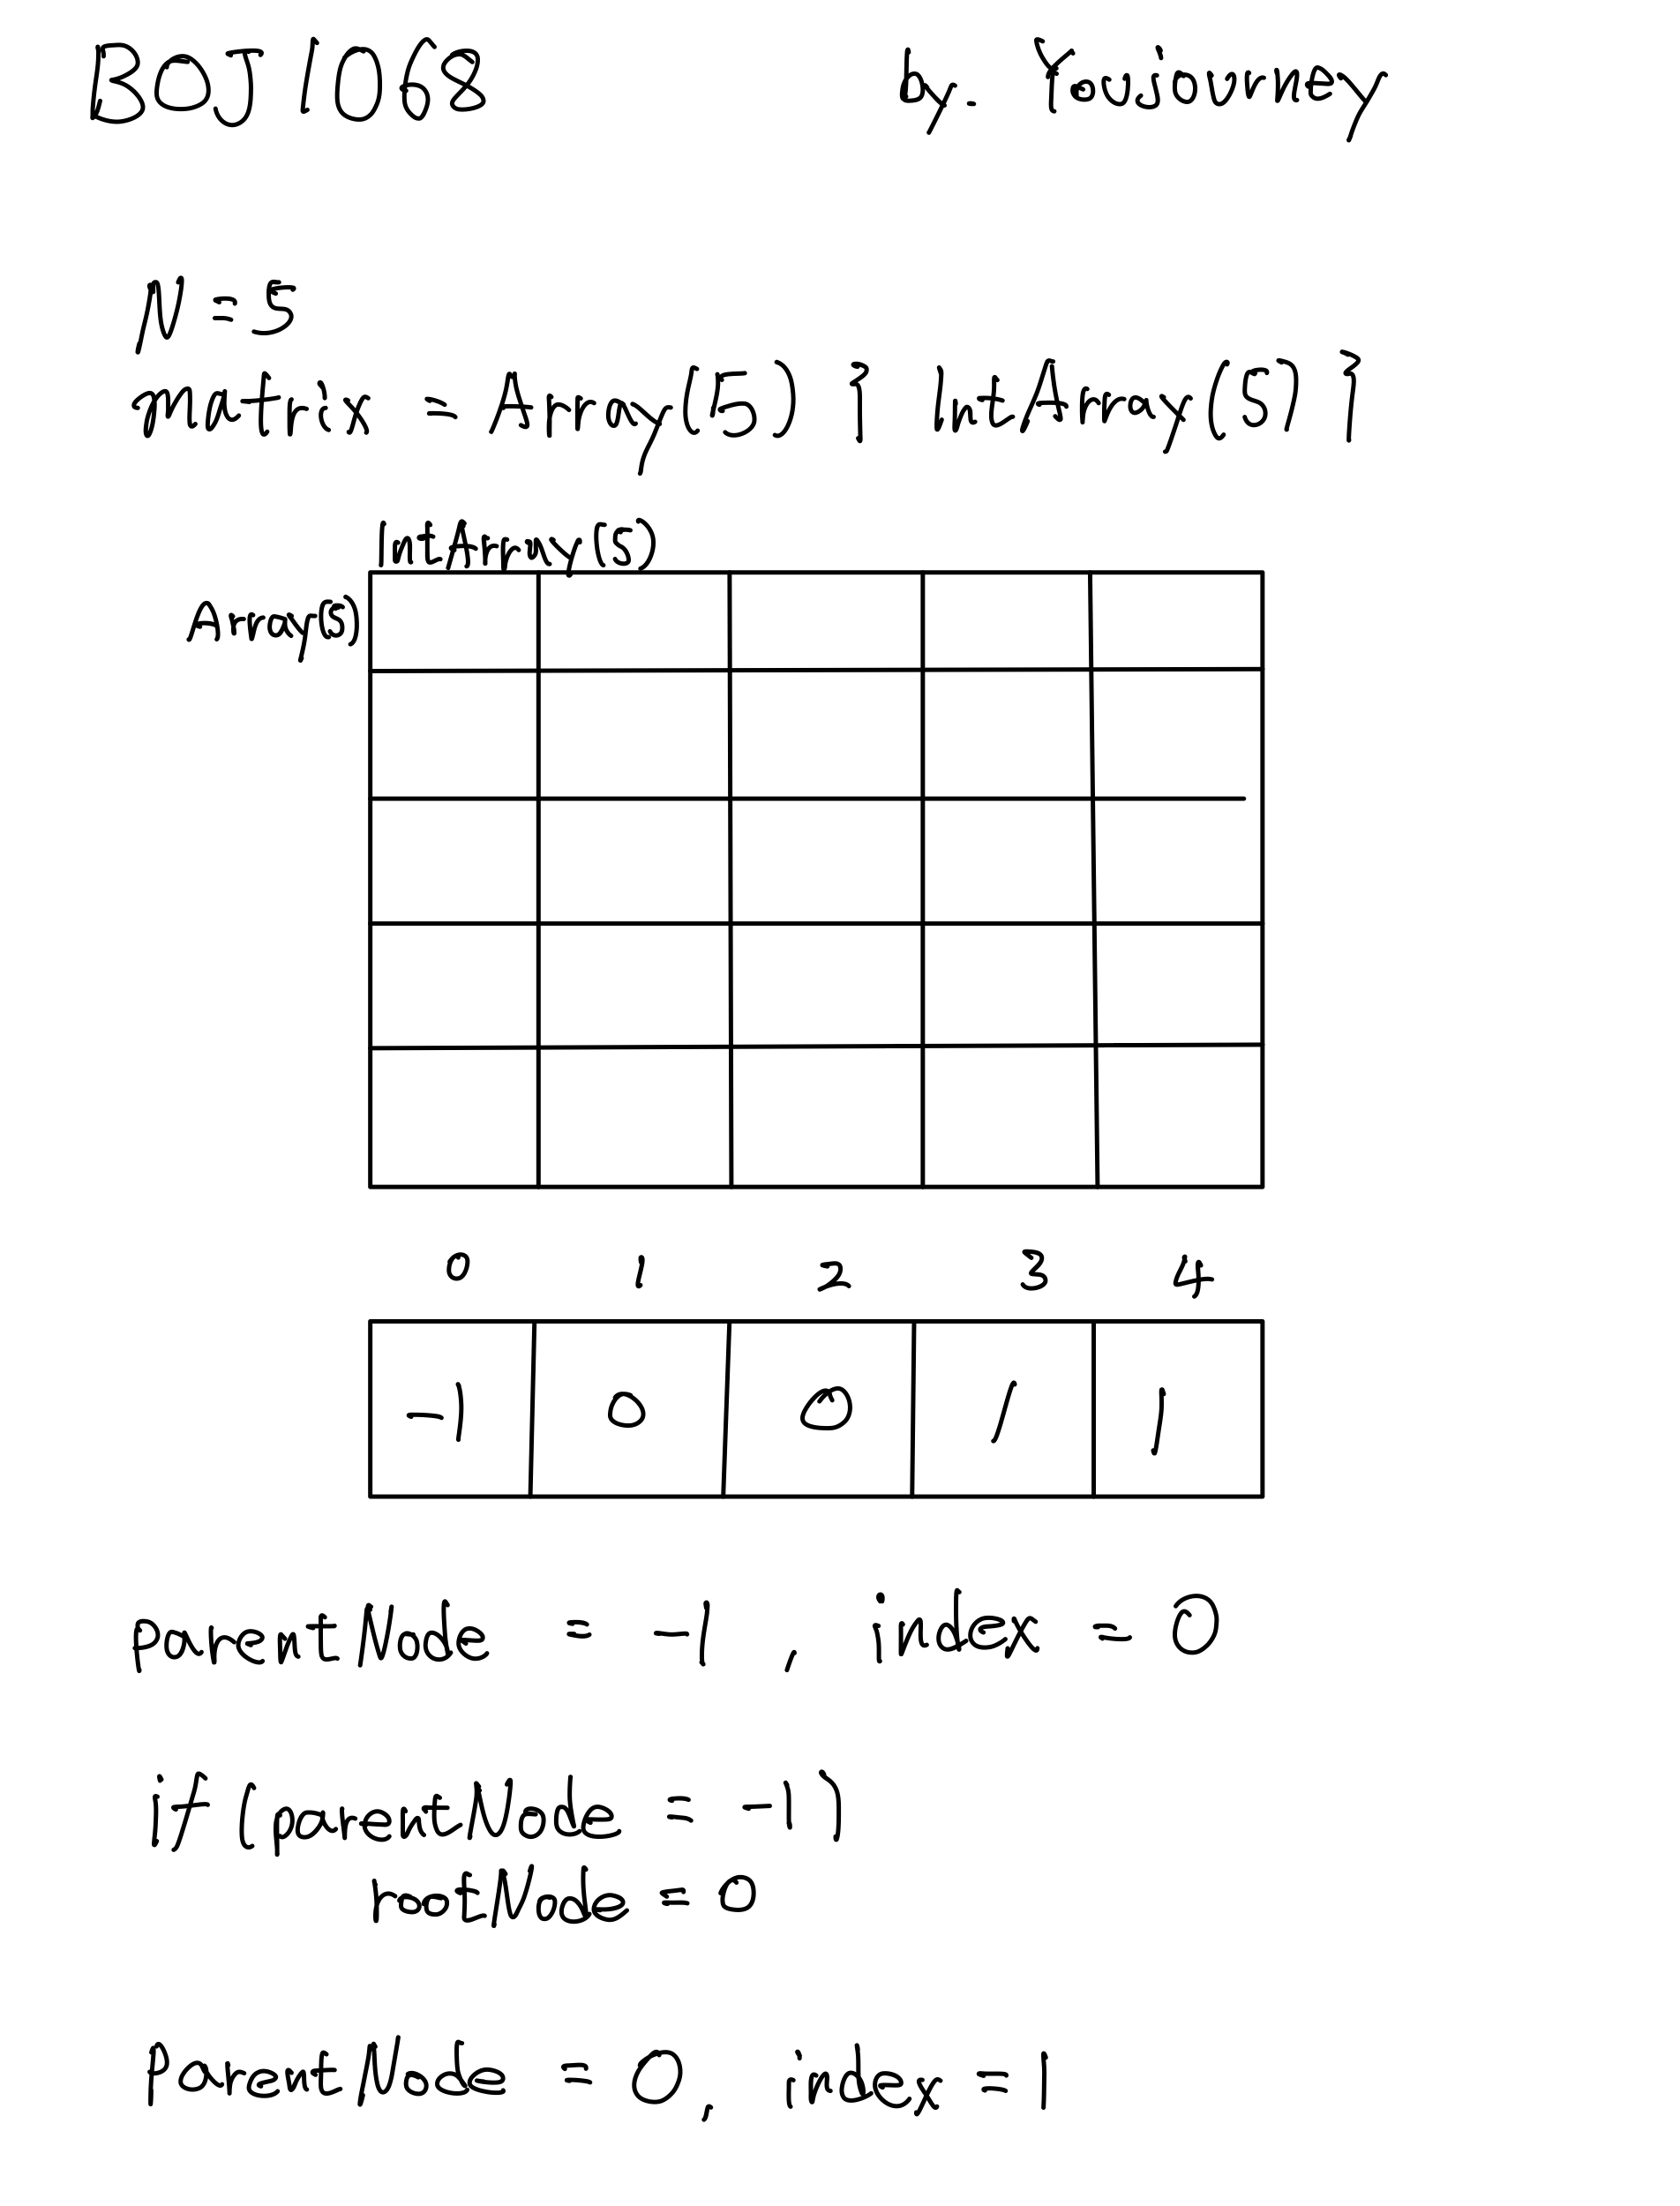 BOJ 1068 by. Yousjourney
N = 5
matrix = Array(5) { IntArray(5) }
IntArray(5)
Array(5)
0 1 2 3 4
-1 0 0 1 1
parentNode = -1, index = 0
if (parentNode = -1)
rootNode = 0
ParentNode = 0, index = 1